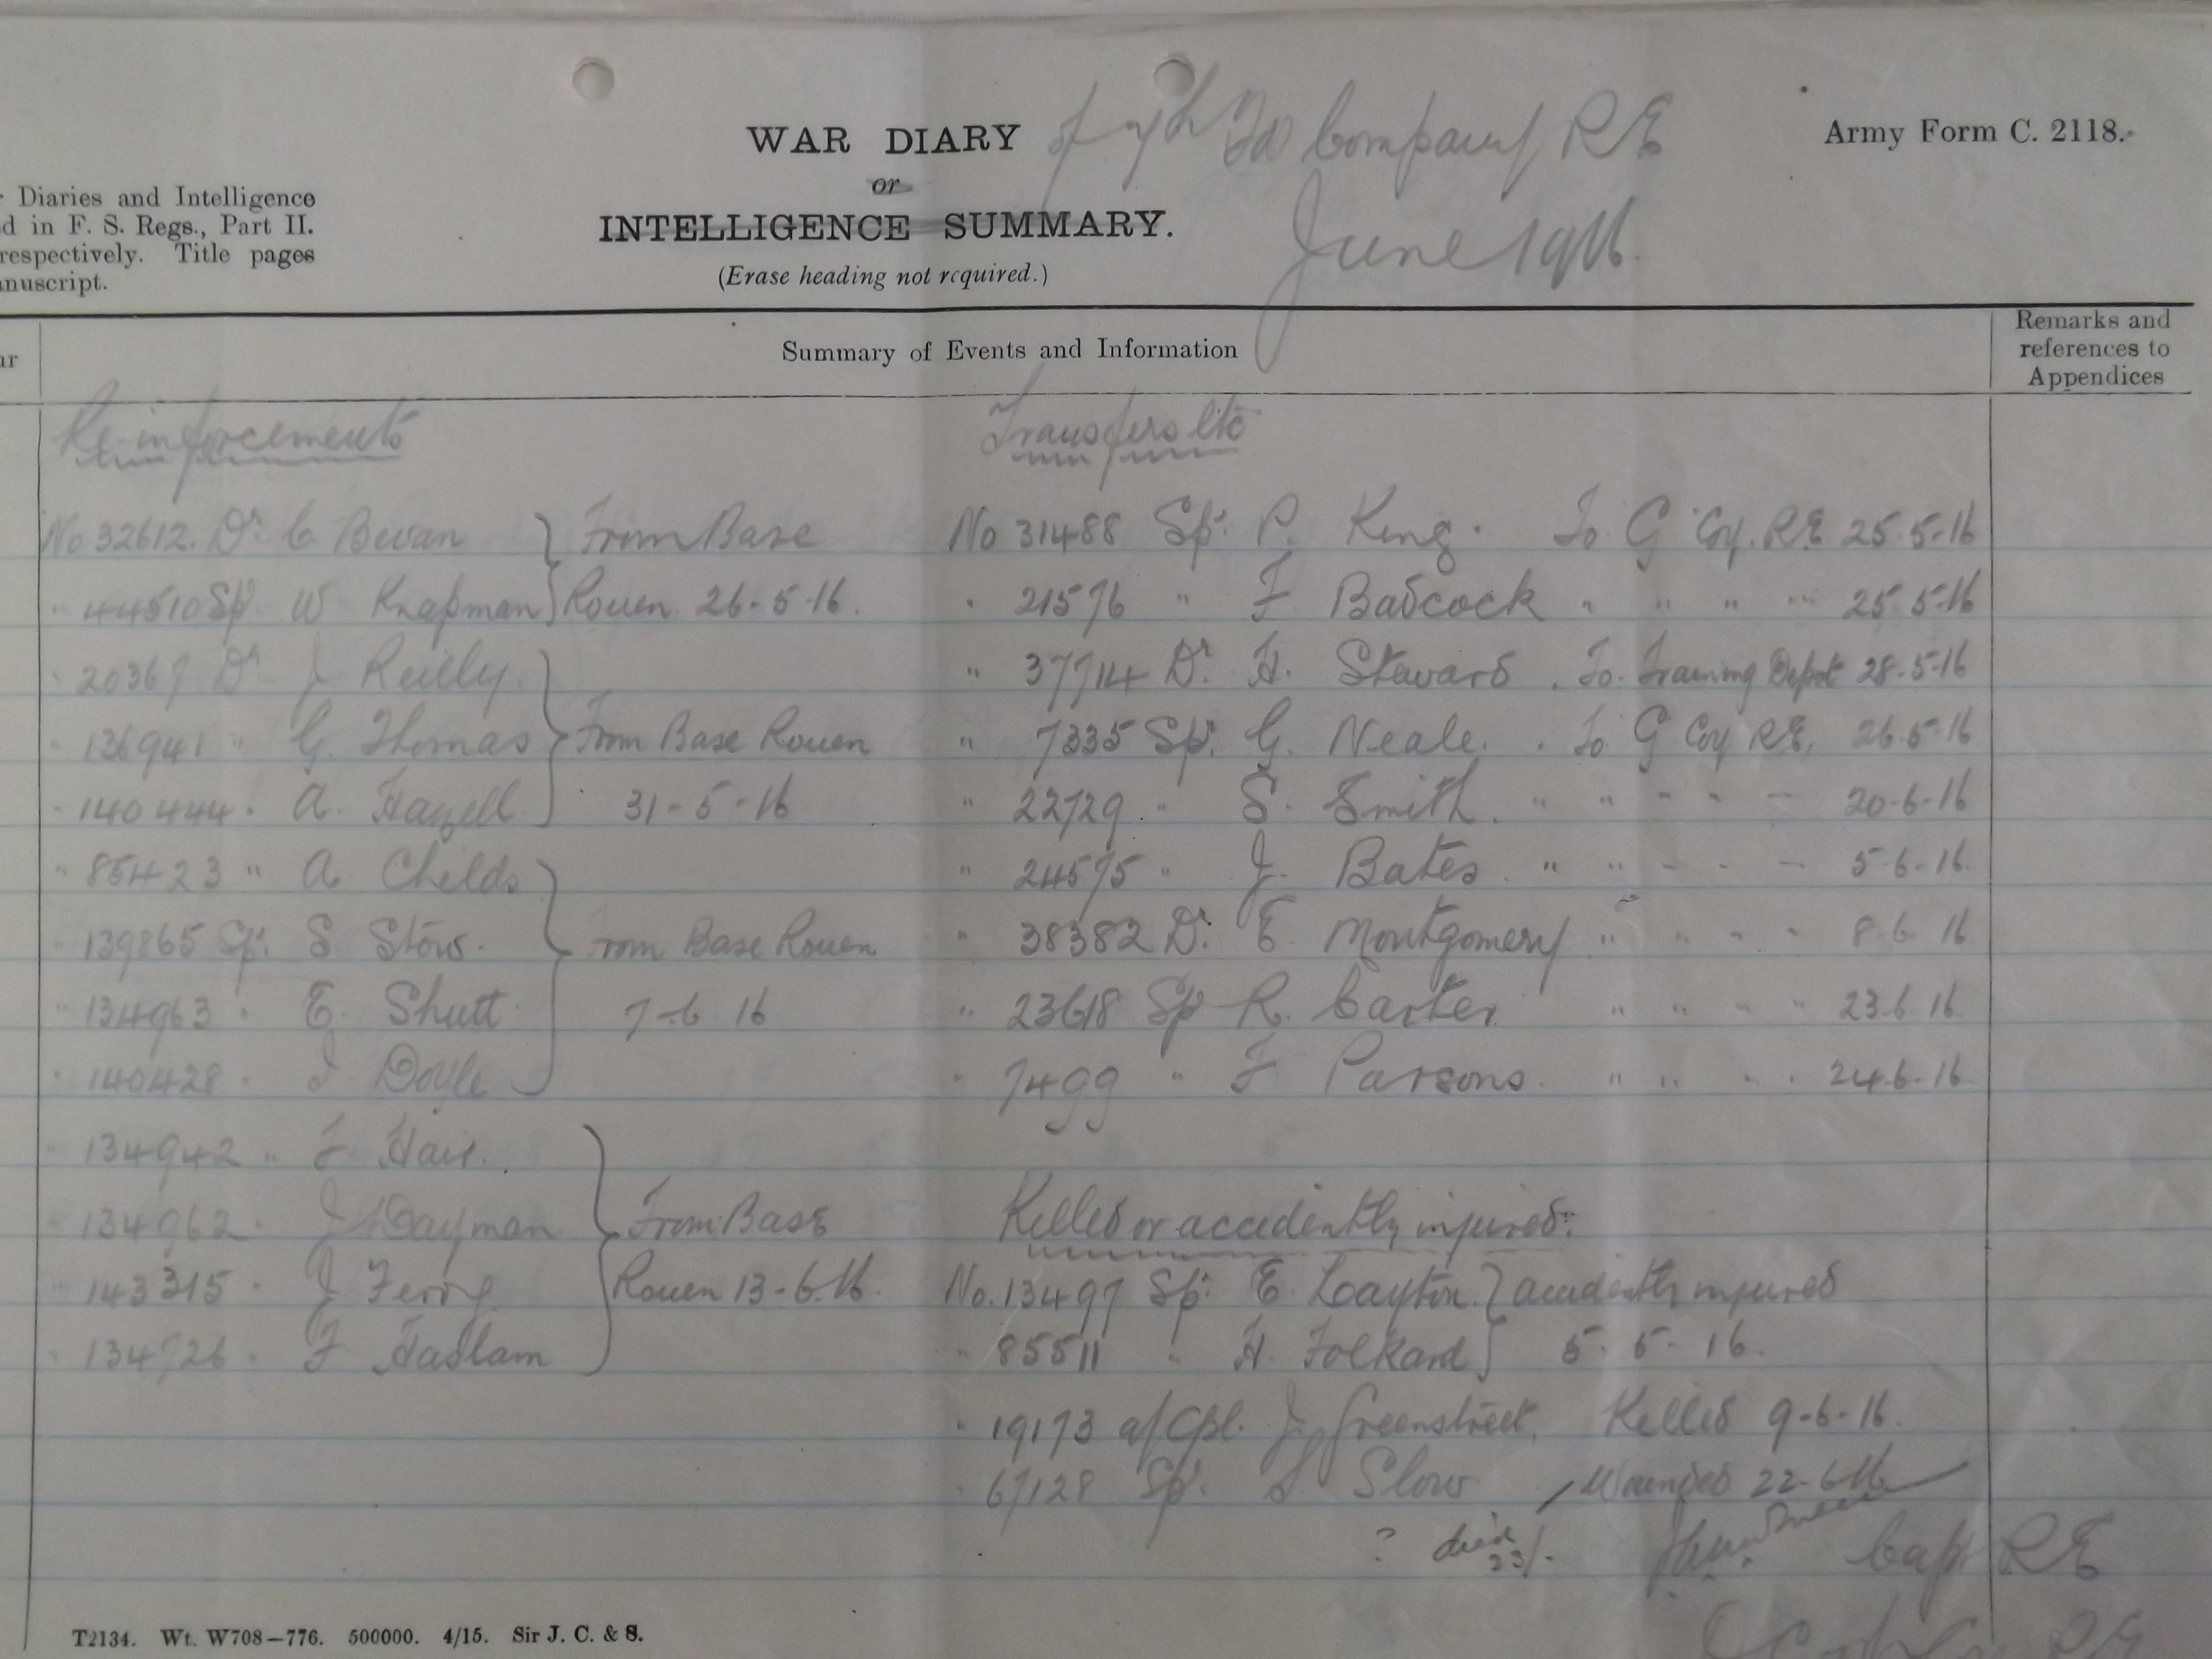 WAR DIARY of 9th Fd Company RE
or
INTELLIGENCE SUMMARY.
(Erase heading not required.)
June 1916.
Army Form C. 2118.
Diaries and Intelligence
d in F. S. Regs., Part II.
respectively. Title pages
anuscript.
Summary of Events and Information
Remarks and
references to
Appendices
Re-inforcements
No 32612. Dr. C Bevan } From Base
" 44510 Sp. W Knapman } Rouen 26-5-16.
" 20367 Dr J Reilly }
" 136941 " G. Thomas } From Base Rouen
" 140444 " A. Hazell } 31-5-16
" 85423 " A Childs }
" 139865 Sp. S. Stow. } From Base Rouen
" 134963 " E. Shutt } 7-6-16
" 140428 " J Doyle }
" 134942 " F Hair. }
" 134962 " J Wayman } From Base
" 143315 " J Ferry } Rouen 13-6-16.
" 134726 " F Haslam }
Transfers etc
No 31488 Sp. P. King. To G Coy. R.E. 25-5-16
" 21576 " F Badcock " " " " 25.5-16
" 37714 Dr. H. Steward. To Training Depot 28-5-16
" 7335 Sp. G. Neale. To G Coy R.E. 26-5-16
" 22729 " S. Smith. " " " " 20-6-16
" 24575 " J. Bates " " " " 5-6-16.
" 38382 Dr. E. Montgomery " " " " 8-6-16
" 23618 Sp R. Carter " " " " 23.6.16
" 7499 " F Parsons. " " " " 24-6-16
Killed or accidently injured:
No. 13497 Sp. E. Layton } accidently injured
" 85511 " H. Folkard } 5-5-16.
" 19173 a/Cpl. J. Greenstreet, Killed 9-6-16.
" 67128 Sp. S Slow / Wounded 22-6-16
? died 23/-
Capt RE
RE
T2134. Wt. W708—776. 500000. 4/15. Sir J. C. & S.